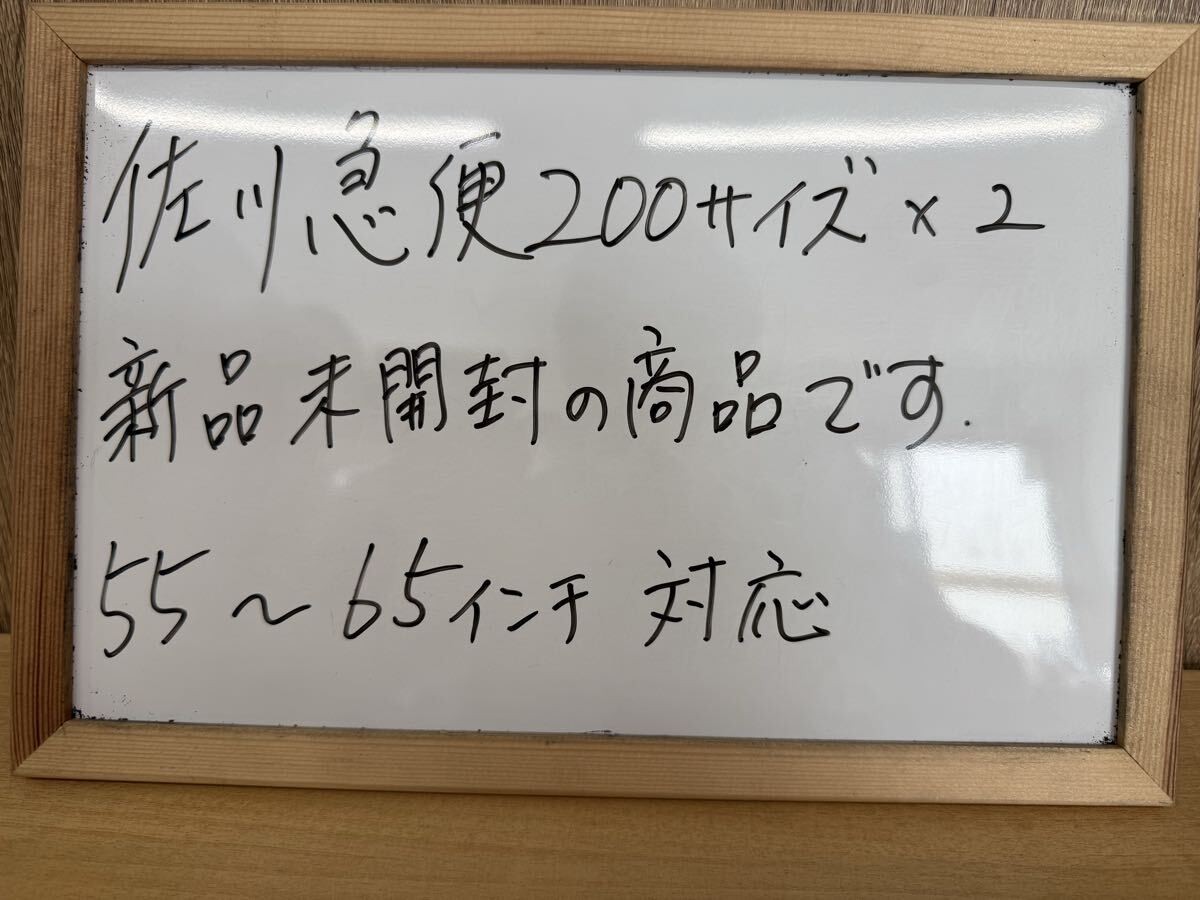 佐川急便200サイズ×2
新品未開封の商品です.
55〜65インチ 対応